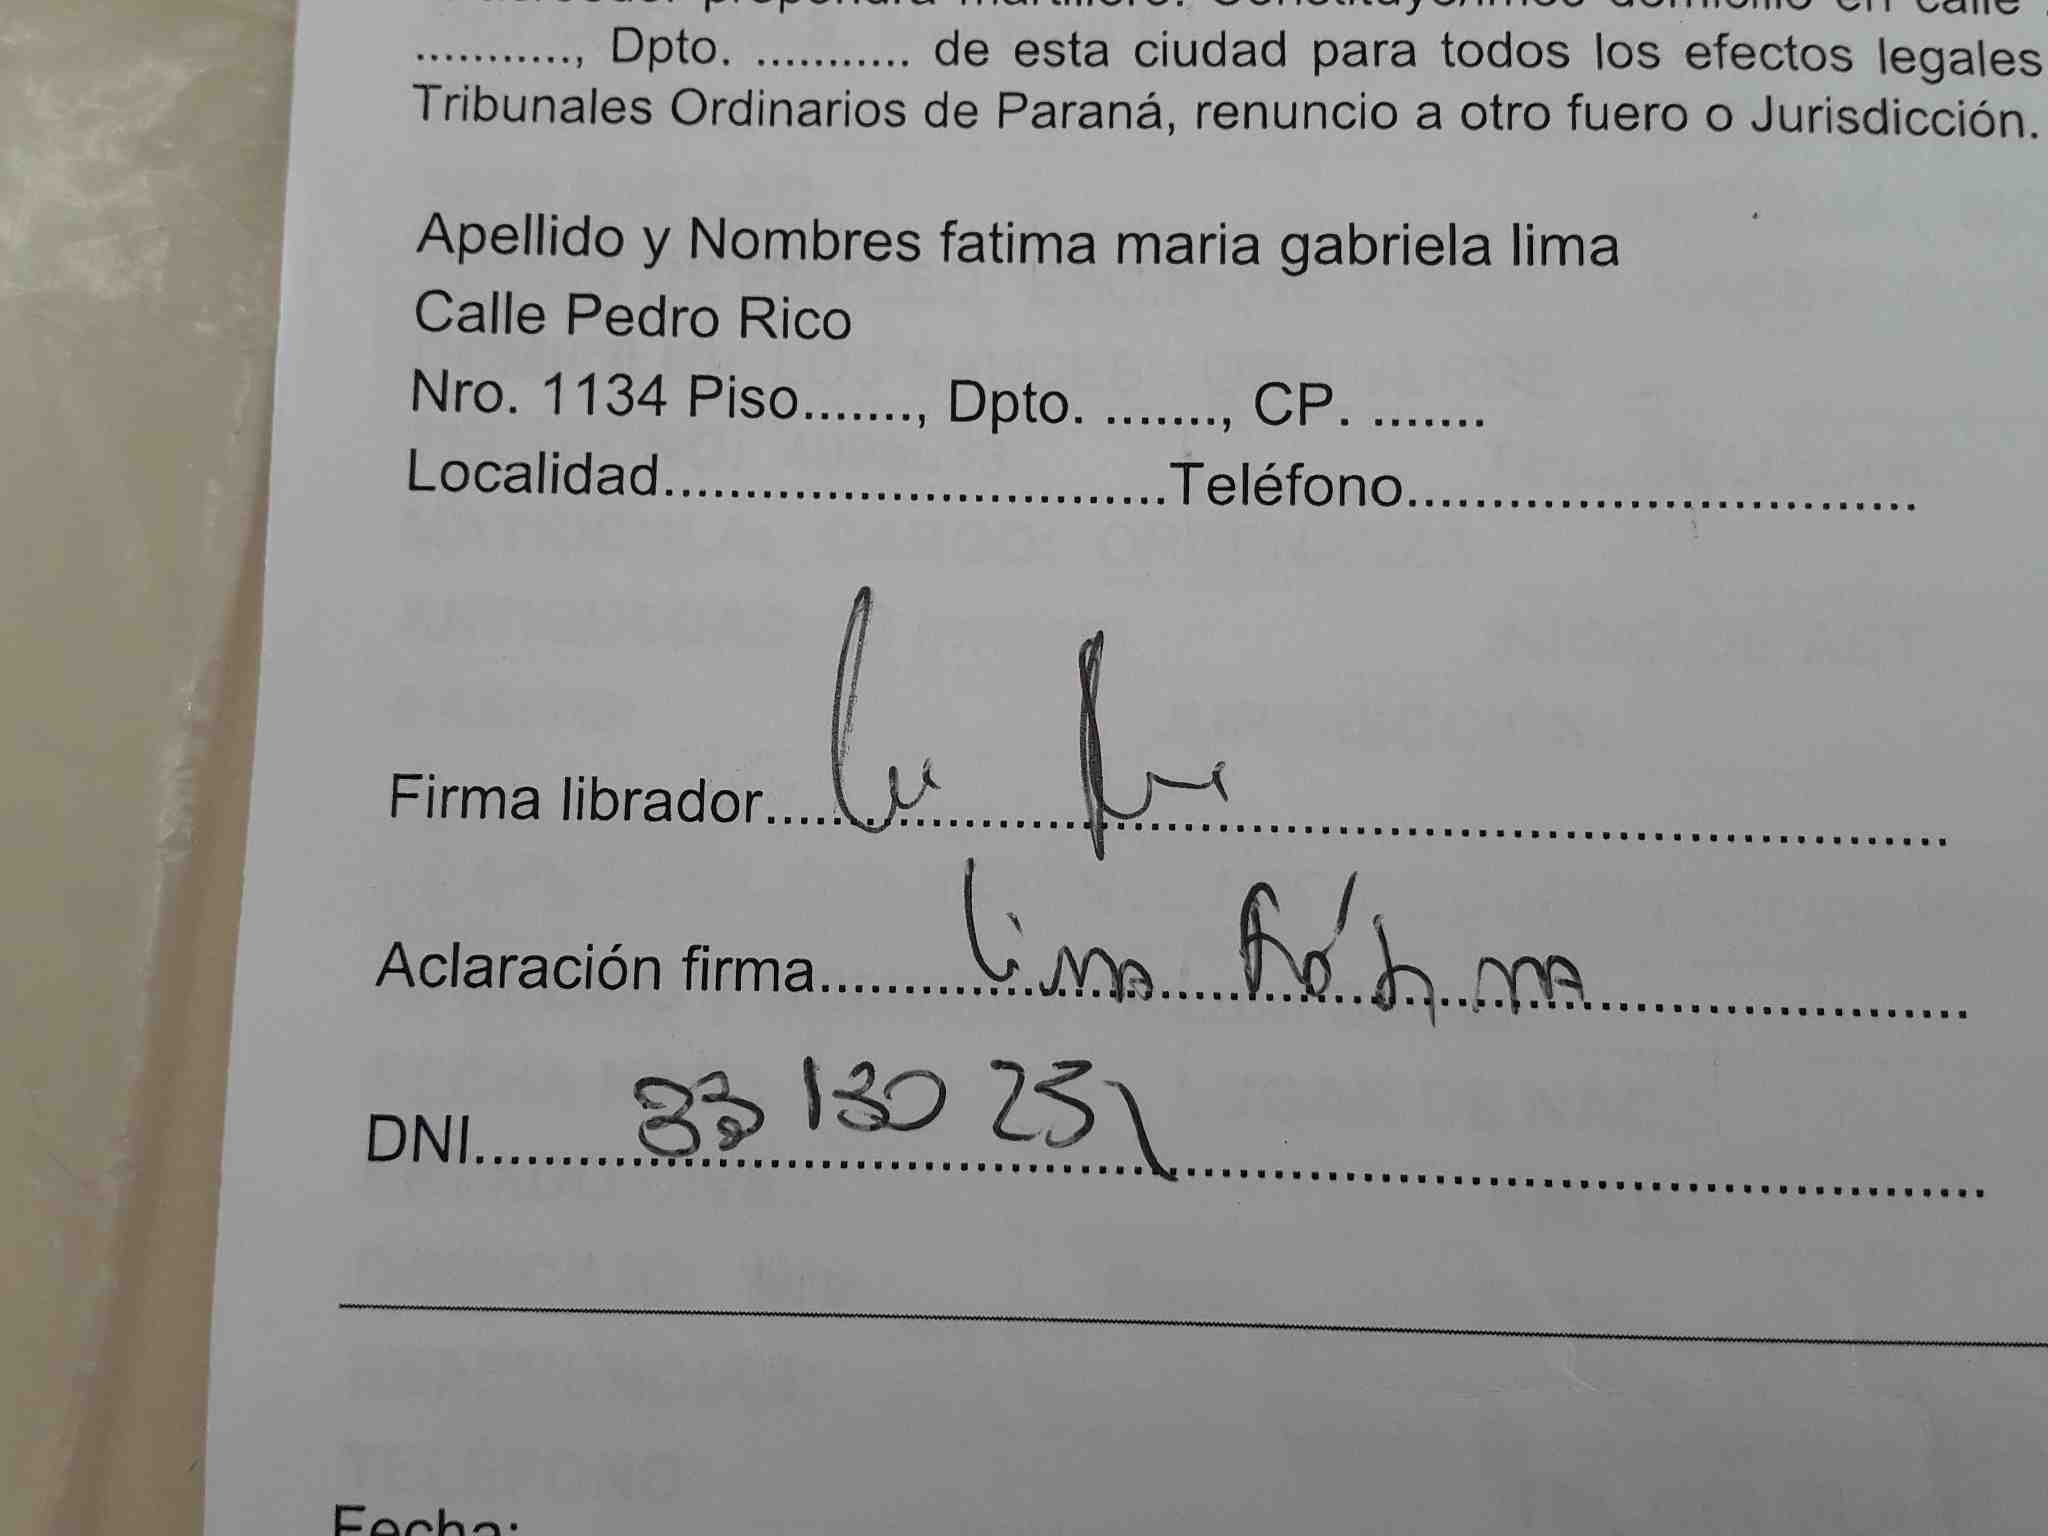 propondrá martillero. Constituyo/imos domicilio en calle
..........., Dpto. ........... de esta ciudad para todos los efectos legales
Tribunales Ordinarios de Paraná, renuncio a otro fuero o Jurisdicción.
Apellido y Nombres fatima maria gabriela lima
Calle Pedro Rico
Nro. 1134 Piso......., Dpto. ......., CP. .......
Localidad...............................Teléfono...............................
Firma librador
Aclaración firma lima Fátima
DNI 33 130 231
TELÉFONO
Fecha: